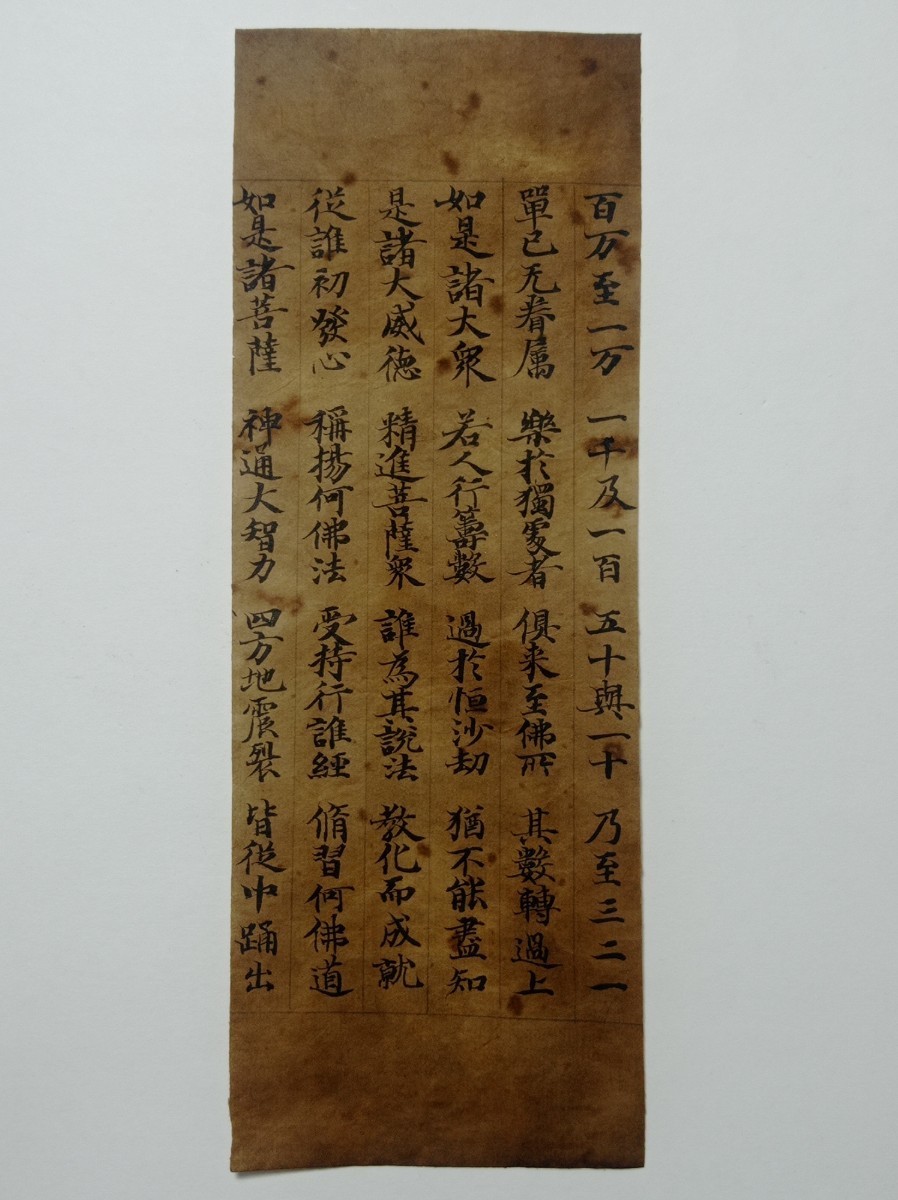 百万至一万 一千及一百 五十與一十 乃至三二一
單己无眷属 樂於獨處者 俱来至佛所 其數轉過上
如是諸大衆 若人行籌數 過於恒沙劫 猶不能盡知
是諸大威徳 精進菩薩衆 誰為其說法 教化而成就
從誰初發心 稱揚何佛法 受持行誰經 脩習何佛道
如是諸菩薩 神通大智力 四方地震裂 皆從中踊出